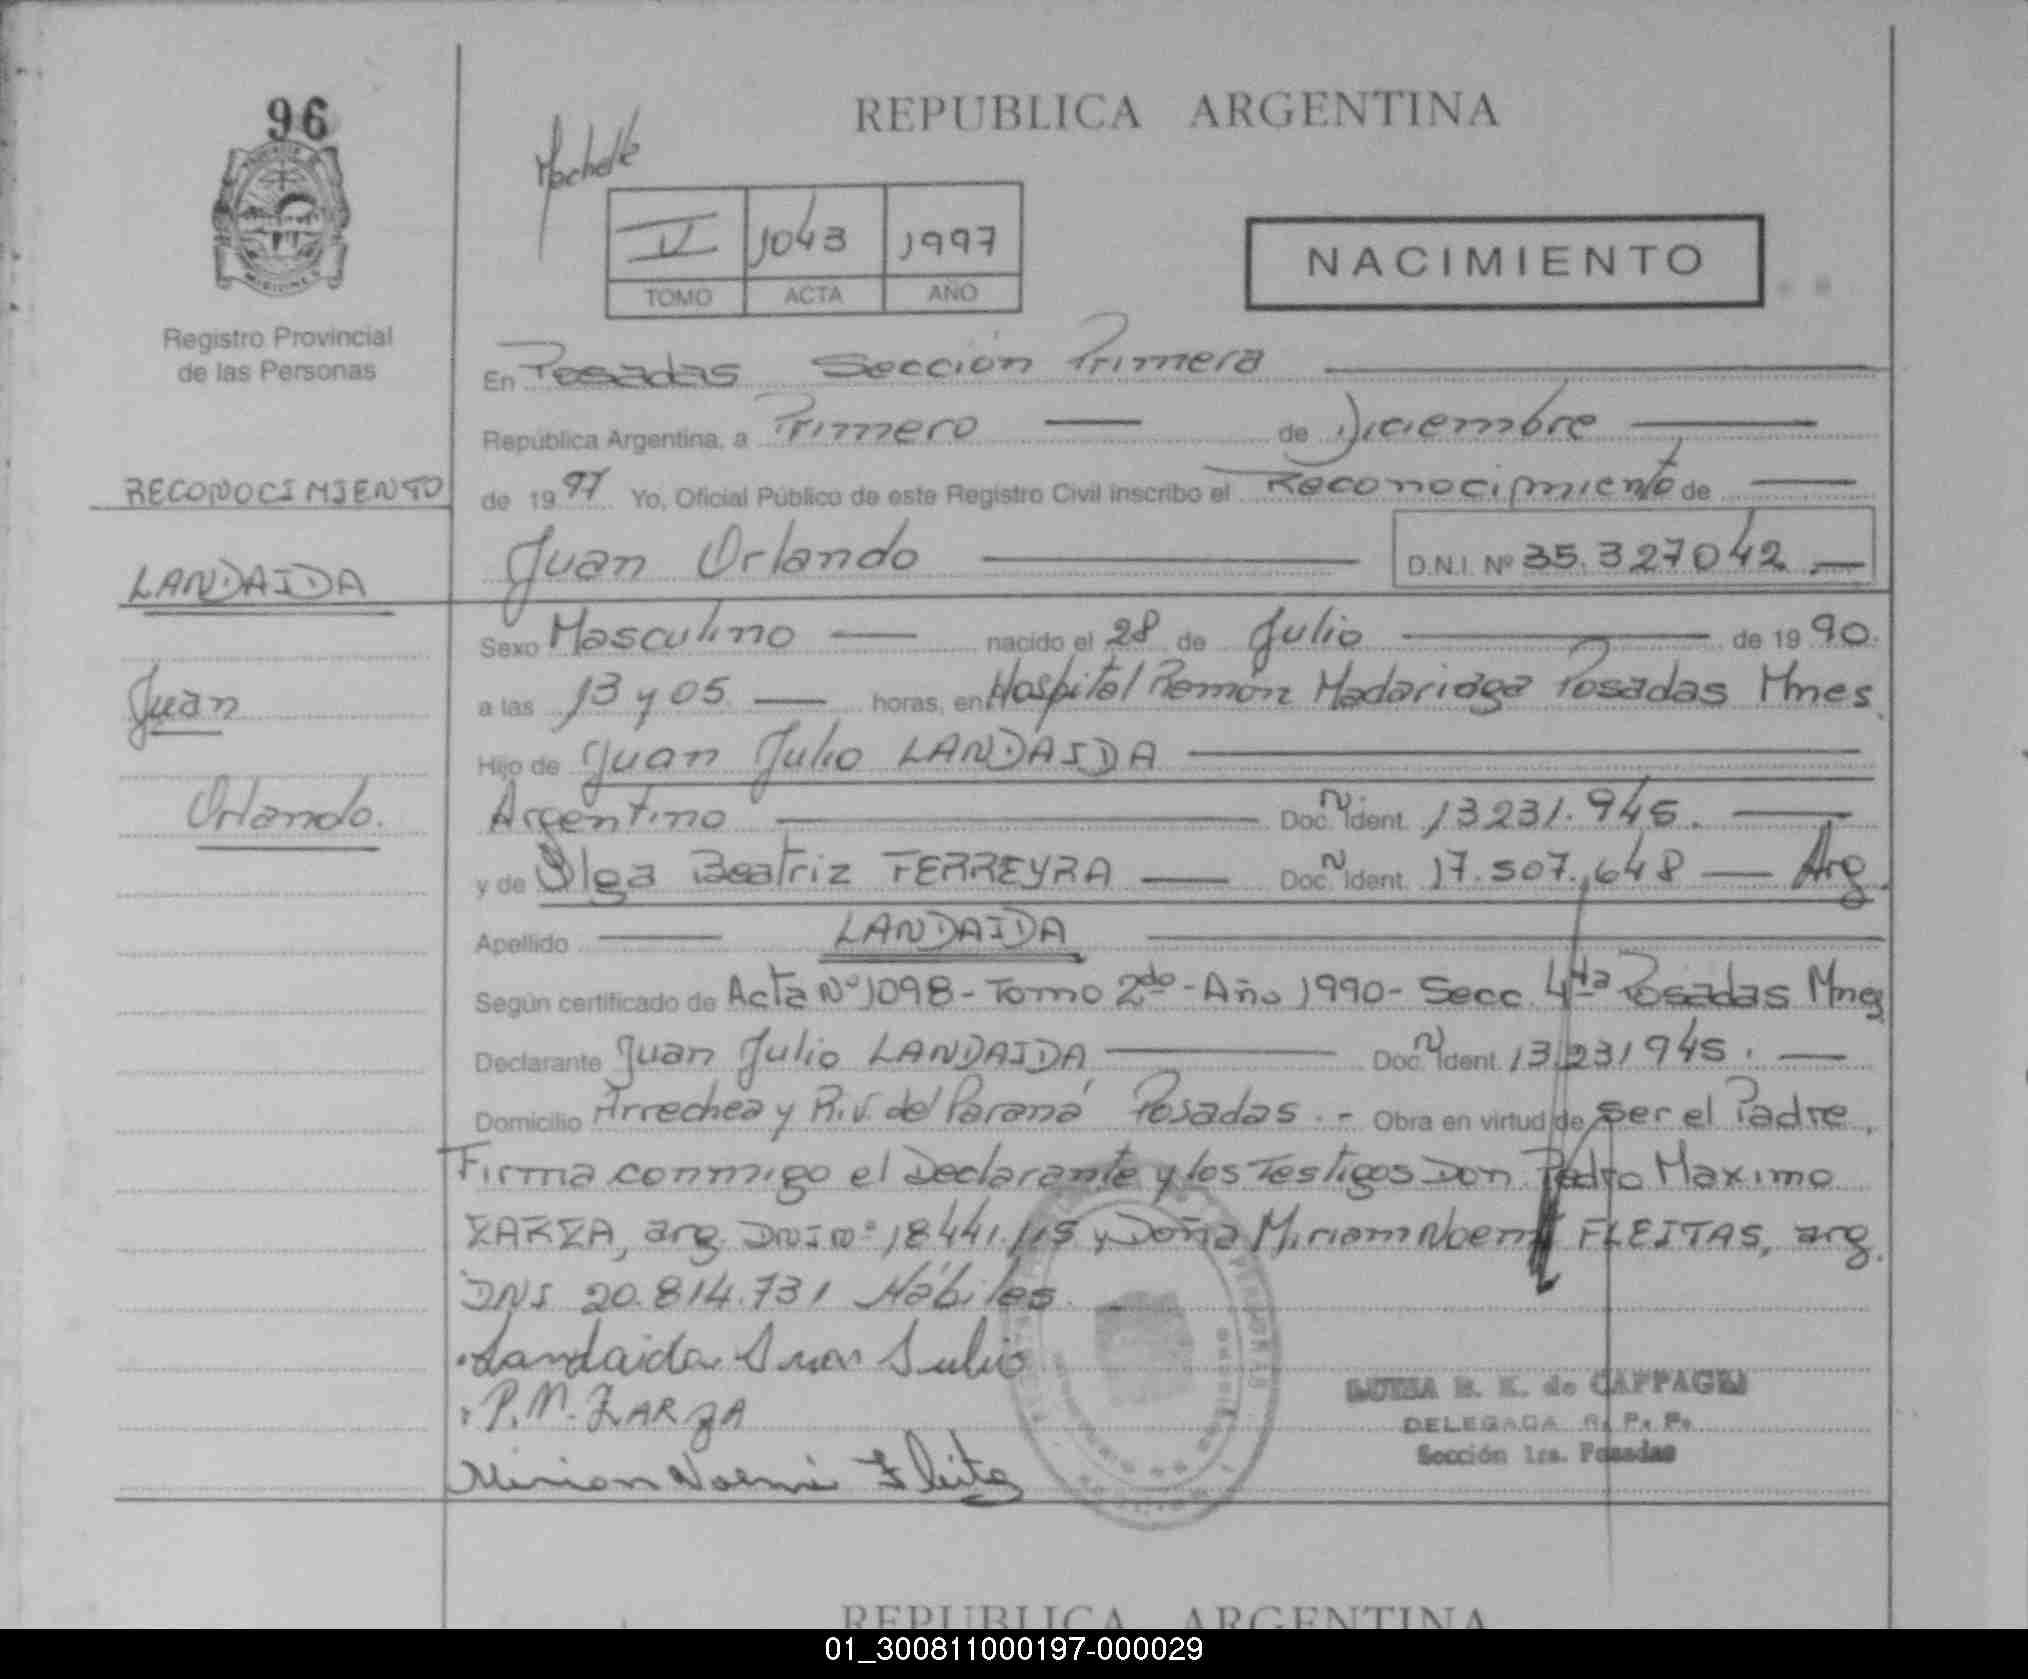 96
REPUBLICA ARGENTINA
V 1043 1997
TOMO ACTA AÑO
NACIMIENTO
Registro Provincial
de las Personas
RECONOCIMIENTO
LANDAIDA
Juan
Orlando.
En Posadas Sección Primera
República Argentina, a Primero de Diciembre
de 1997 Yo, Oficial Público de este Registro Civil inscribo el Reconocimiento de
Juan Orlando D.N.I. Nº 35.327042
Sexo Masculino nacido el 28 de Julio de 1990.
a las 13 y 05. horas, en Hospital Ramón Madariaga Posadas Mnes.
Hijo de Juan Julio LANDAIDA
Argentino Doc. Ident. 13231.945.
y de Olga Beatriz FERREYRA Doc. Ident. 17.507.648 Arg.
Apellido LANDAIDA
Según certificado de Acta Nº 1098 - Tomo 2do - Año 1990 - Secc. 4ta Posadas Mnes
Declarante Juan Julio LANDAIDA Doc. Ident. 13.231945.
Domicilio Arrechea y R.V. del Paraná Posadas. - Obra en virtud de ser el Padre.
Firma conmigo el Declarante y los Testigos Don Pedro Maximo
ZARZA, arg. DNI Nº 18441.115 y Doña Miriam Noemi FLEITAS, arg.
DNI 20.814.731 Hábiles.
Landaida Juan Julio
P. M. ZARZA
Mirian Noemi Fleita
LUISA B. K. de CAPPAGLI
DELEGADA R. P. P.
Sección 1ra. Posadas
REPUBLICA ARGENTINA
01_300811000197-000029